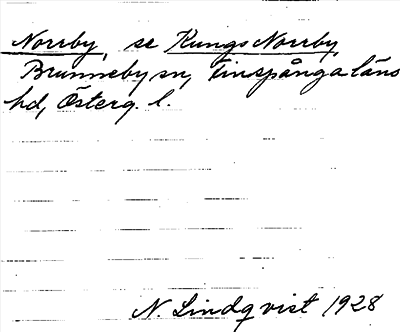 Norrby, se Kungs Norrby,
Brunneby sn, Finspånga läns
hd, Österg. l.
N. Lindqvist 1928